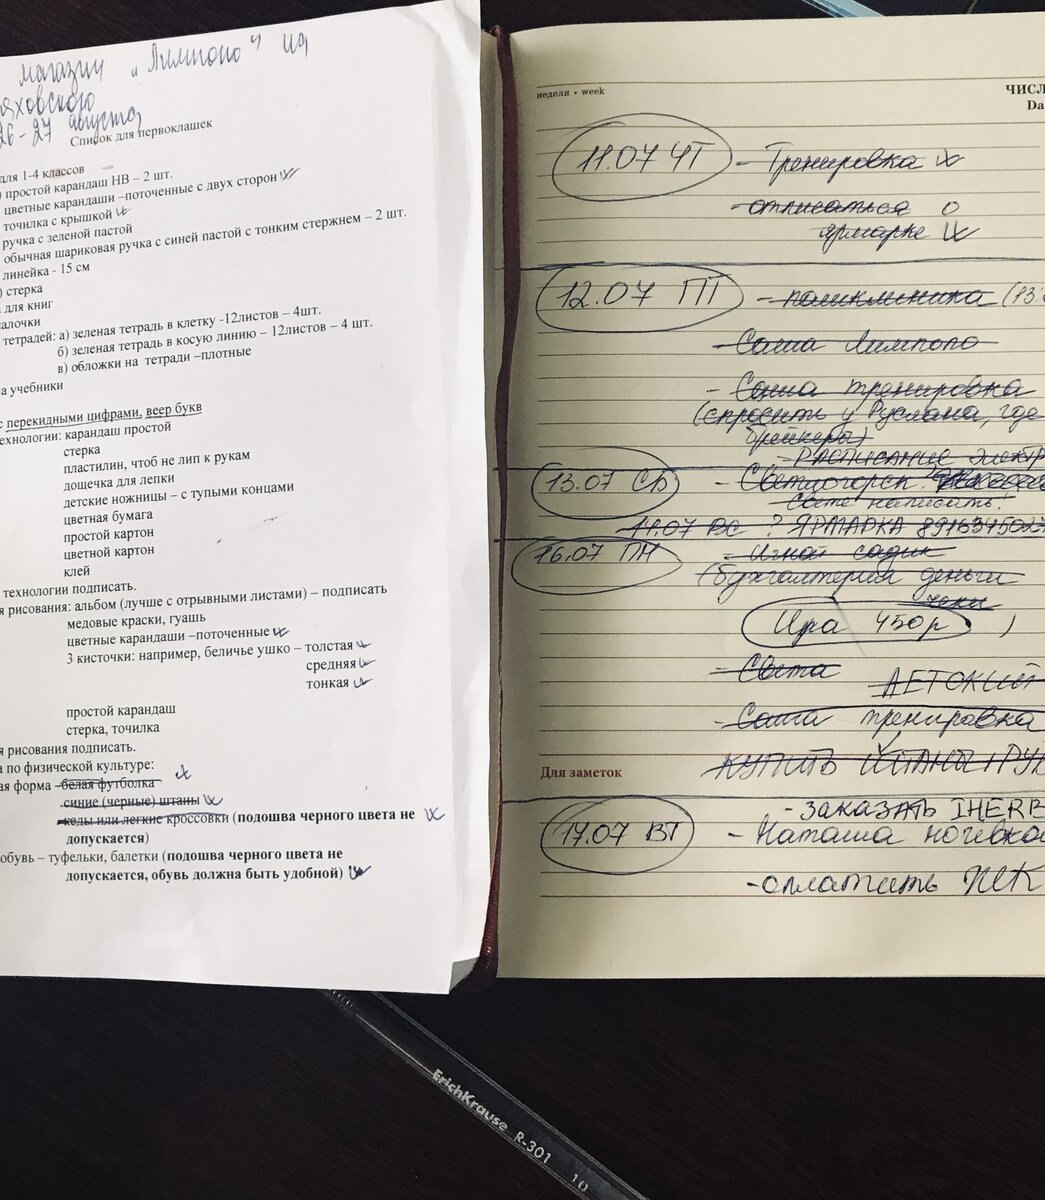 магазин „Лимпопо" на
26-27 августа
Список для первоклашек
для 1-4 классов
) простой карандаш НВ – 2 шт.
цветные карандаши –поточенные с двух сторон
точилка с крышкой
ручка с зеленой пастой
обычная шариковая ручка с синей пастой с тонким стержнем – 2 шт.
линейка - 15 см
) стерка
для книг
алочки
тетрадей: а) зеленая тетрадь в клетку -12листов – 4шт.
б) зеленая тетрадь в косую линию – 12листов – 4 шт.
в) обложки на тетради –плотные
а учебники
с перекидными цифрами, веер букв
ехнологии: карандаш простой
стерка
пластилин, чтоб не лип к рукам
дощечка для лепки
детские ножницы – с тупыми концами
цветная бумага
простой картон
цветной картон
клей
технологии подписать.
я рисования: альбом (лучше с отрывными листами) – подписать
медовые краски, гуашь
цветные карандаши –поточенные
3 кисточки: например, беличье ушко – толстая
средняя
тонкая
простой карандаш
стерка, точилка
я рисования подписать.
а по физической культуре:
ая форма белая футболка
синие (черные) штаны
кеды или легкие кроссовки (подошва черного цвета не
допускается)
обувь – туфельки, балетки (подошва черного цвета не
допускается, обувь должна быть удобной)
неделя • week
ЧИСЛ
Da
11.07 ЧТ - Тренировка
отписаться о
ярмарке
12.07 ПТ - поликлиника (13:
- Саша Лимпопо
- Саша тренировка
(спросить у Руслана, где
брейкера)
- РАСПИСАНИЕ ЭЛЕКТР
13.07 СБ - Светлогорск.
Свете написать!
14.07 ВС ? ЯРМАРКА 8916345027
16.07 ПН -
(бухгалтерия деньги
чеки
Ира 450р )
- Света
ДЕТСКИЙ
- Саша тренировка
КУПИТЬ ШТАНЫ
Для заметок
- ЗАКАЗАТЬ IHERB
17.07 ВТ - Наташа
- оплатить
ErichKrause R-301 10